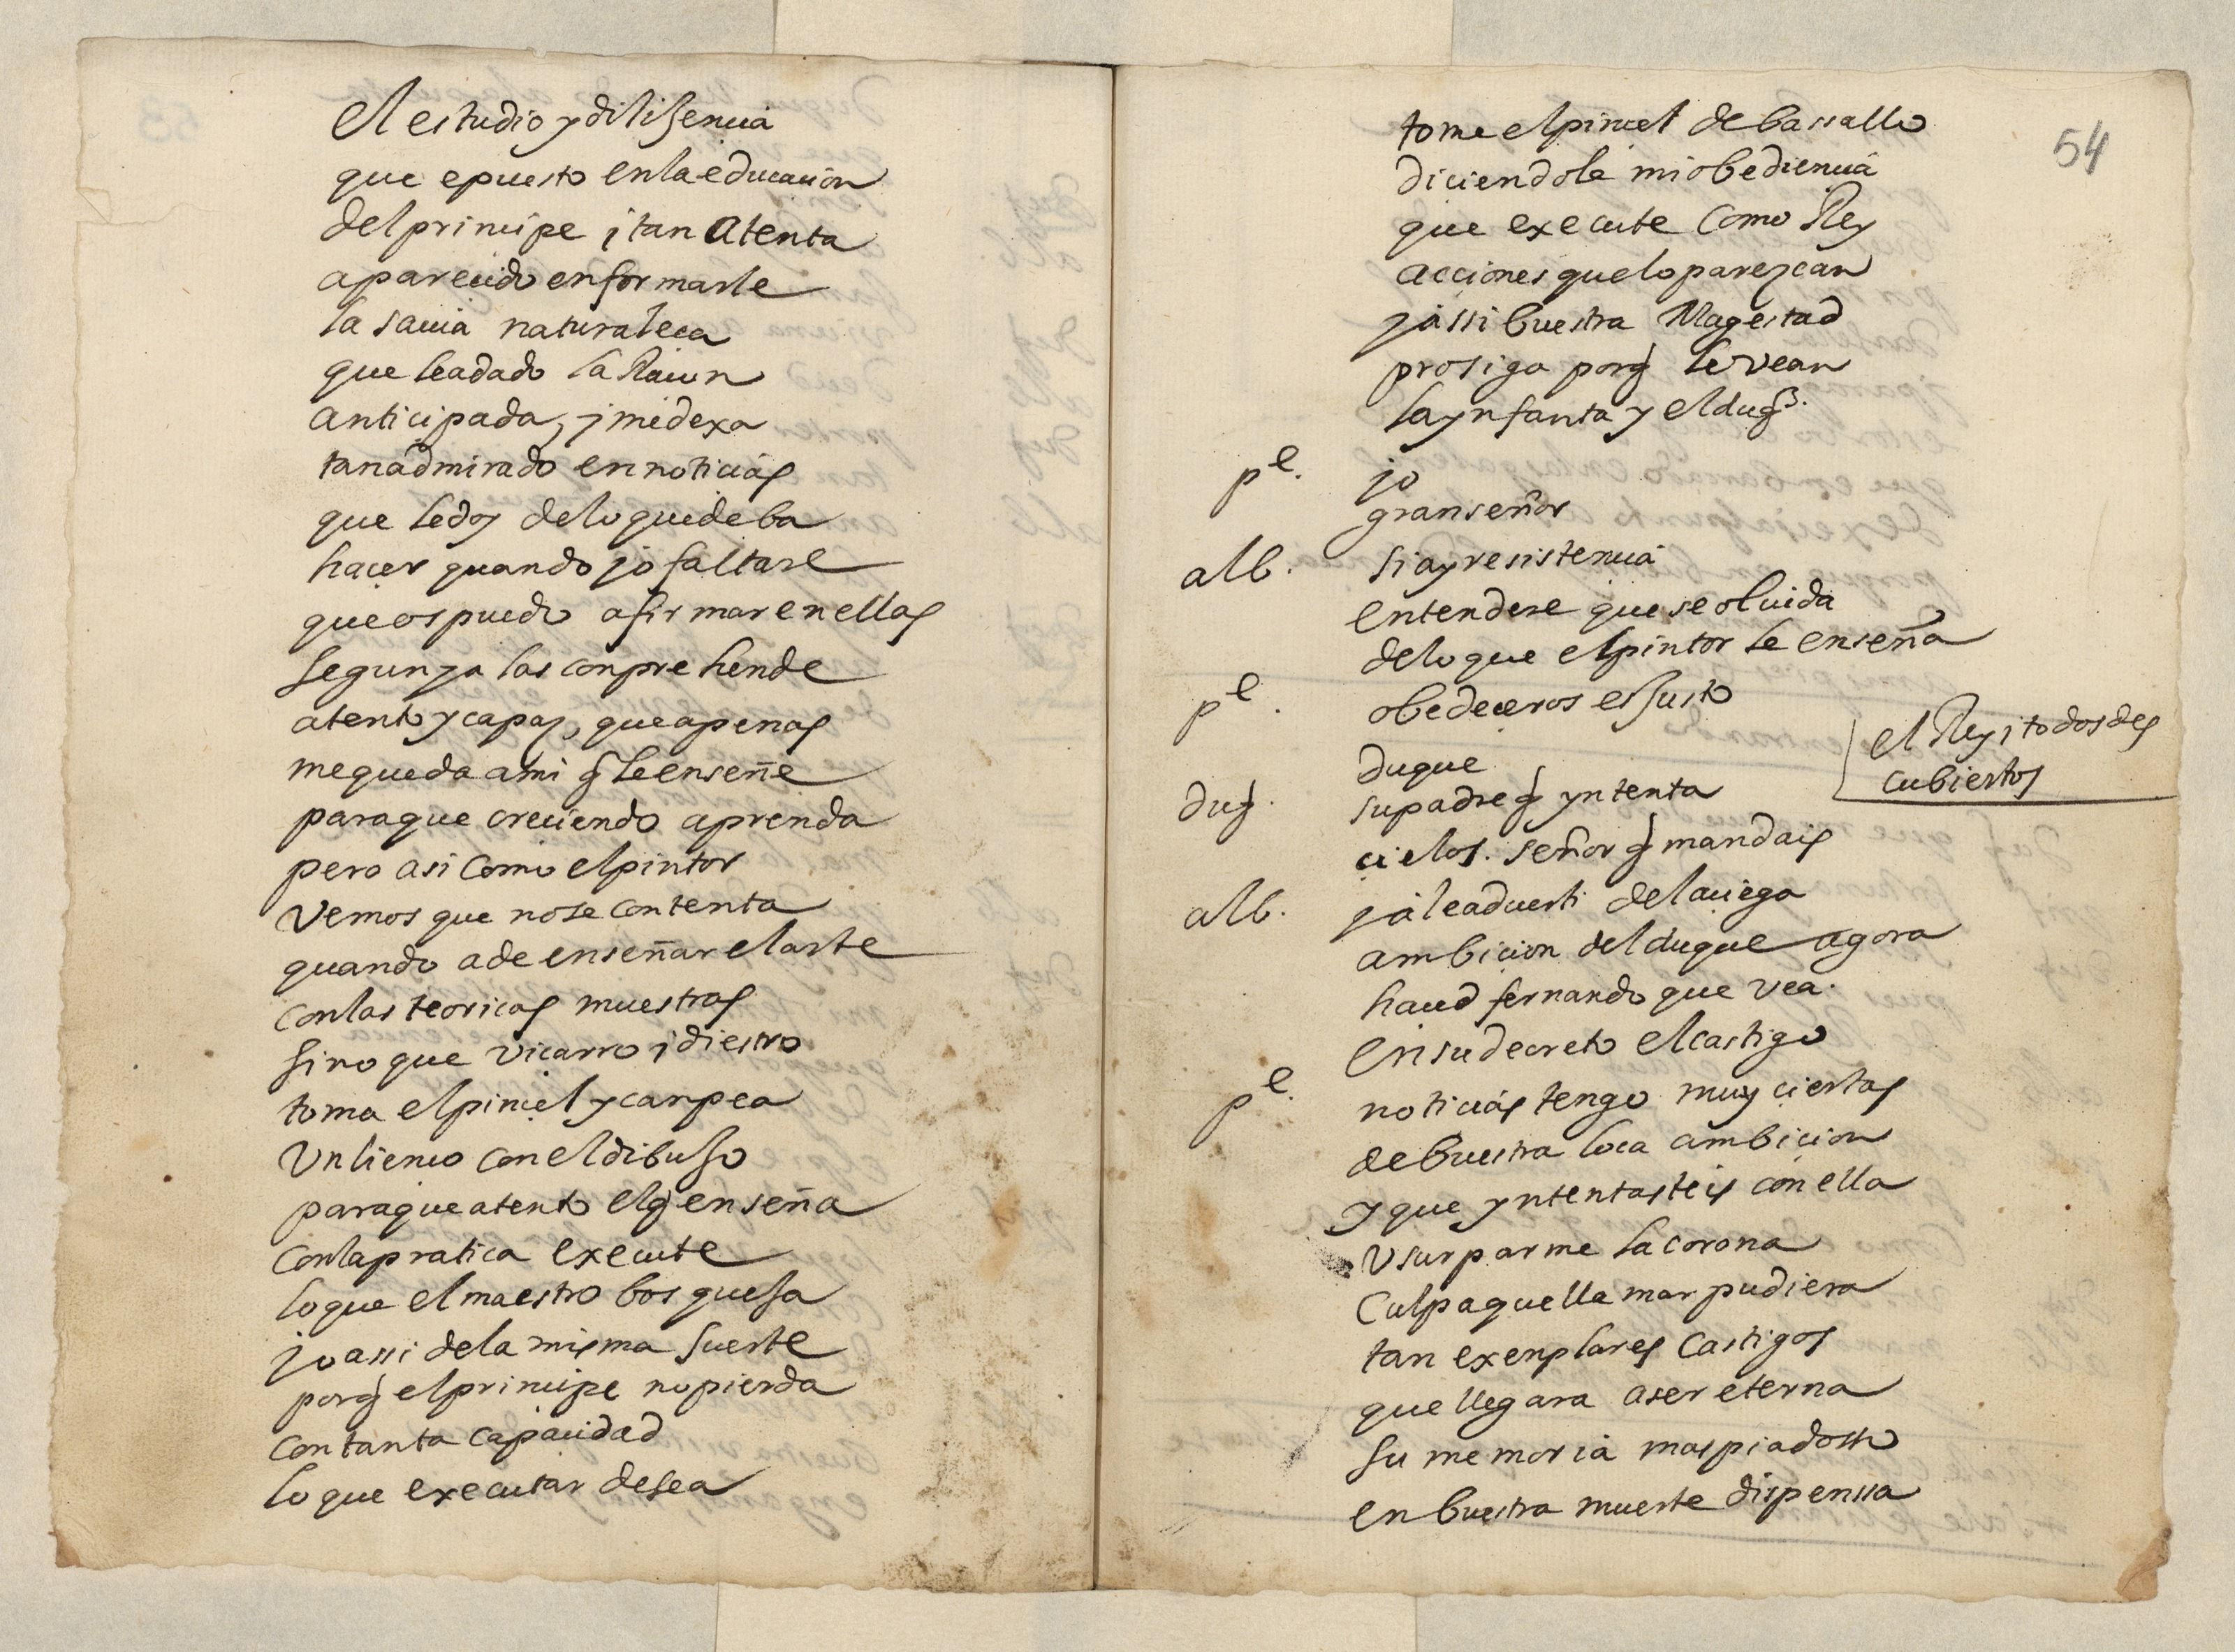 El estudio y diliJencia
que e puesto en la educacion
del principe i tan Atenta
a parecido en formarle
la savia naturaleca
que le a dado la Racon
anticipada, j me dexa
tan admirado en noticias
que le doy de lo que deba
hacer quando jo faltare
que os puedo afirmar en ellas
segun ya las conprehende
atento y capaz, que apenas
me queda a mi q̃ le enseñe
para que creciendo aprenda
pero asi como el pintor
vemos que no se contenta
quando a de enseñar el arte
con las teoricas muestras
sino que vicarro i diestro
toma el pincel y canpea
vn lienco con el dibuJo
para que atento el q̃ enseña
con la pratica execute
lo que el maestro bosqueJa
jo assi de la misma suerte
porq̃ el principe no pierda
con tanta capacidad
lo que executar desea
54
tome el pincel de bassallo
diciendole mi obediencia
que execute como Rey
acciones que lo parezcan
y assi buestra Magestad
prosiga porq̃ le vean
la ynfanta y el duq̃.
pe. jo
gran señor
alb. si ay resistencia
entendere que se olvida
de lo que el pintor le enseña
pe. obedeceros es Justo
duque
el Rey i todos des
cubiertos
duq̃. su padre q̃ yntenta
cielos. señor q̃ mandais
alb. ya le adverti de la ciega
ambicion del duque agora
haced fernando que vea.
en su decreto el castigo
pe. noticias tengo muy ciertas
de buestra loca ambicion
y que yntentasteis con ella
vsurparme la corona
culpa que llamar pudiera
tan exenplares castigos
que llegara a ser eterna
su memoria mas piadosso
en buestra muerte dispenssa